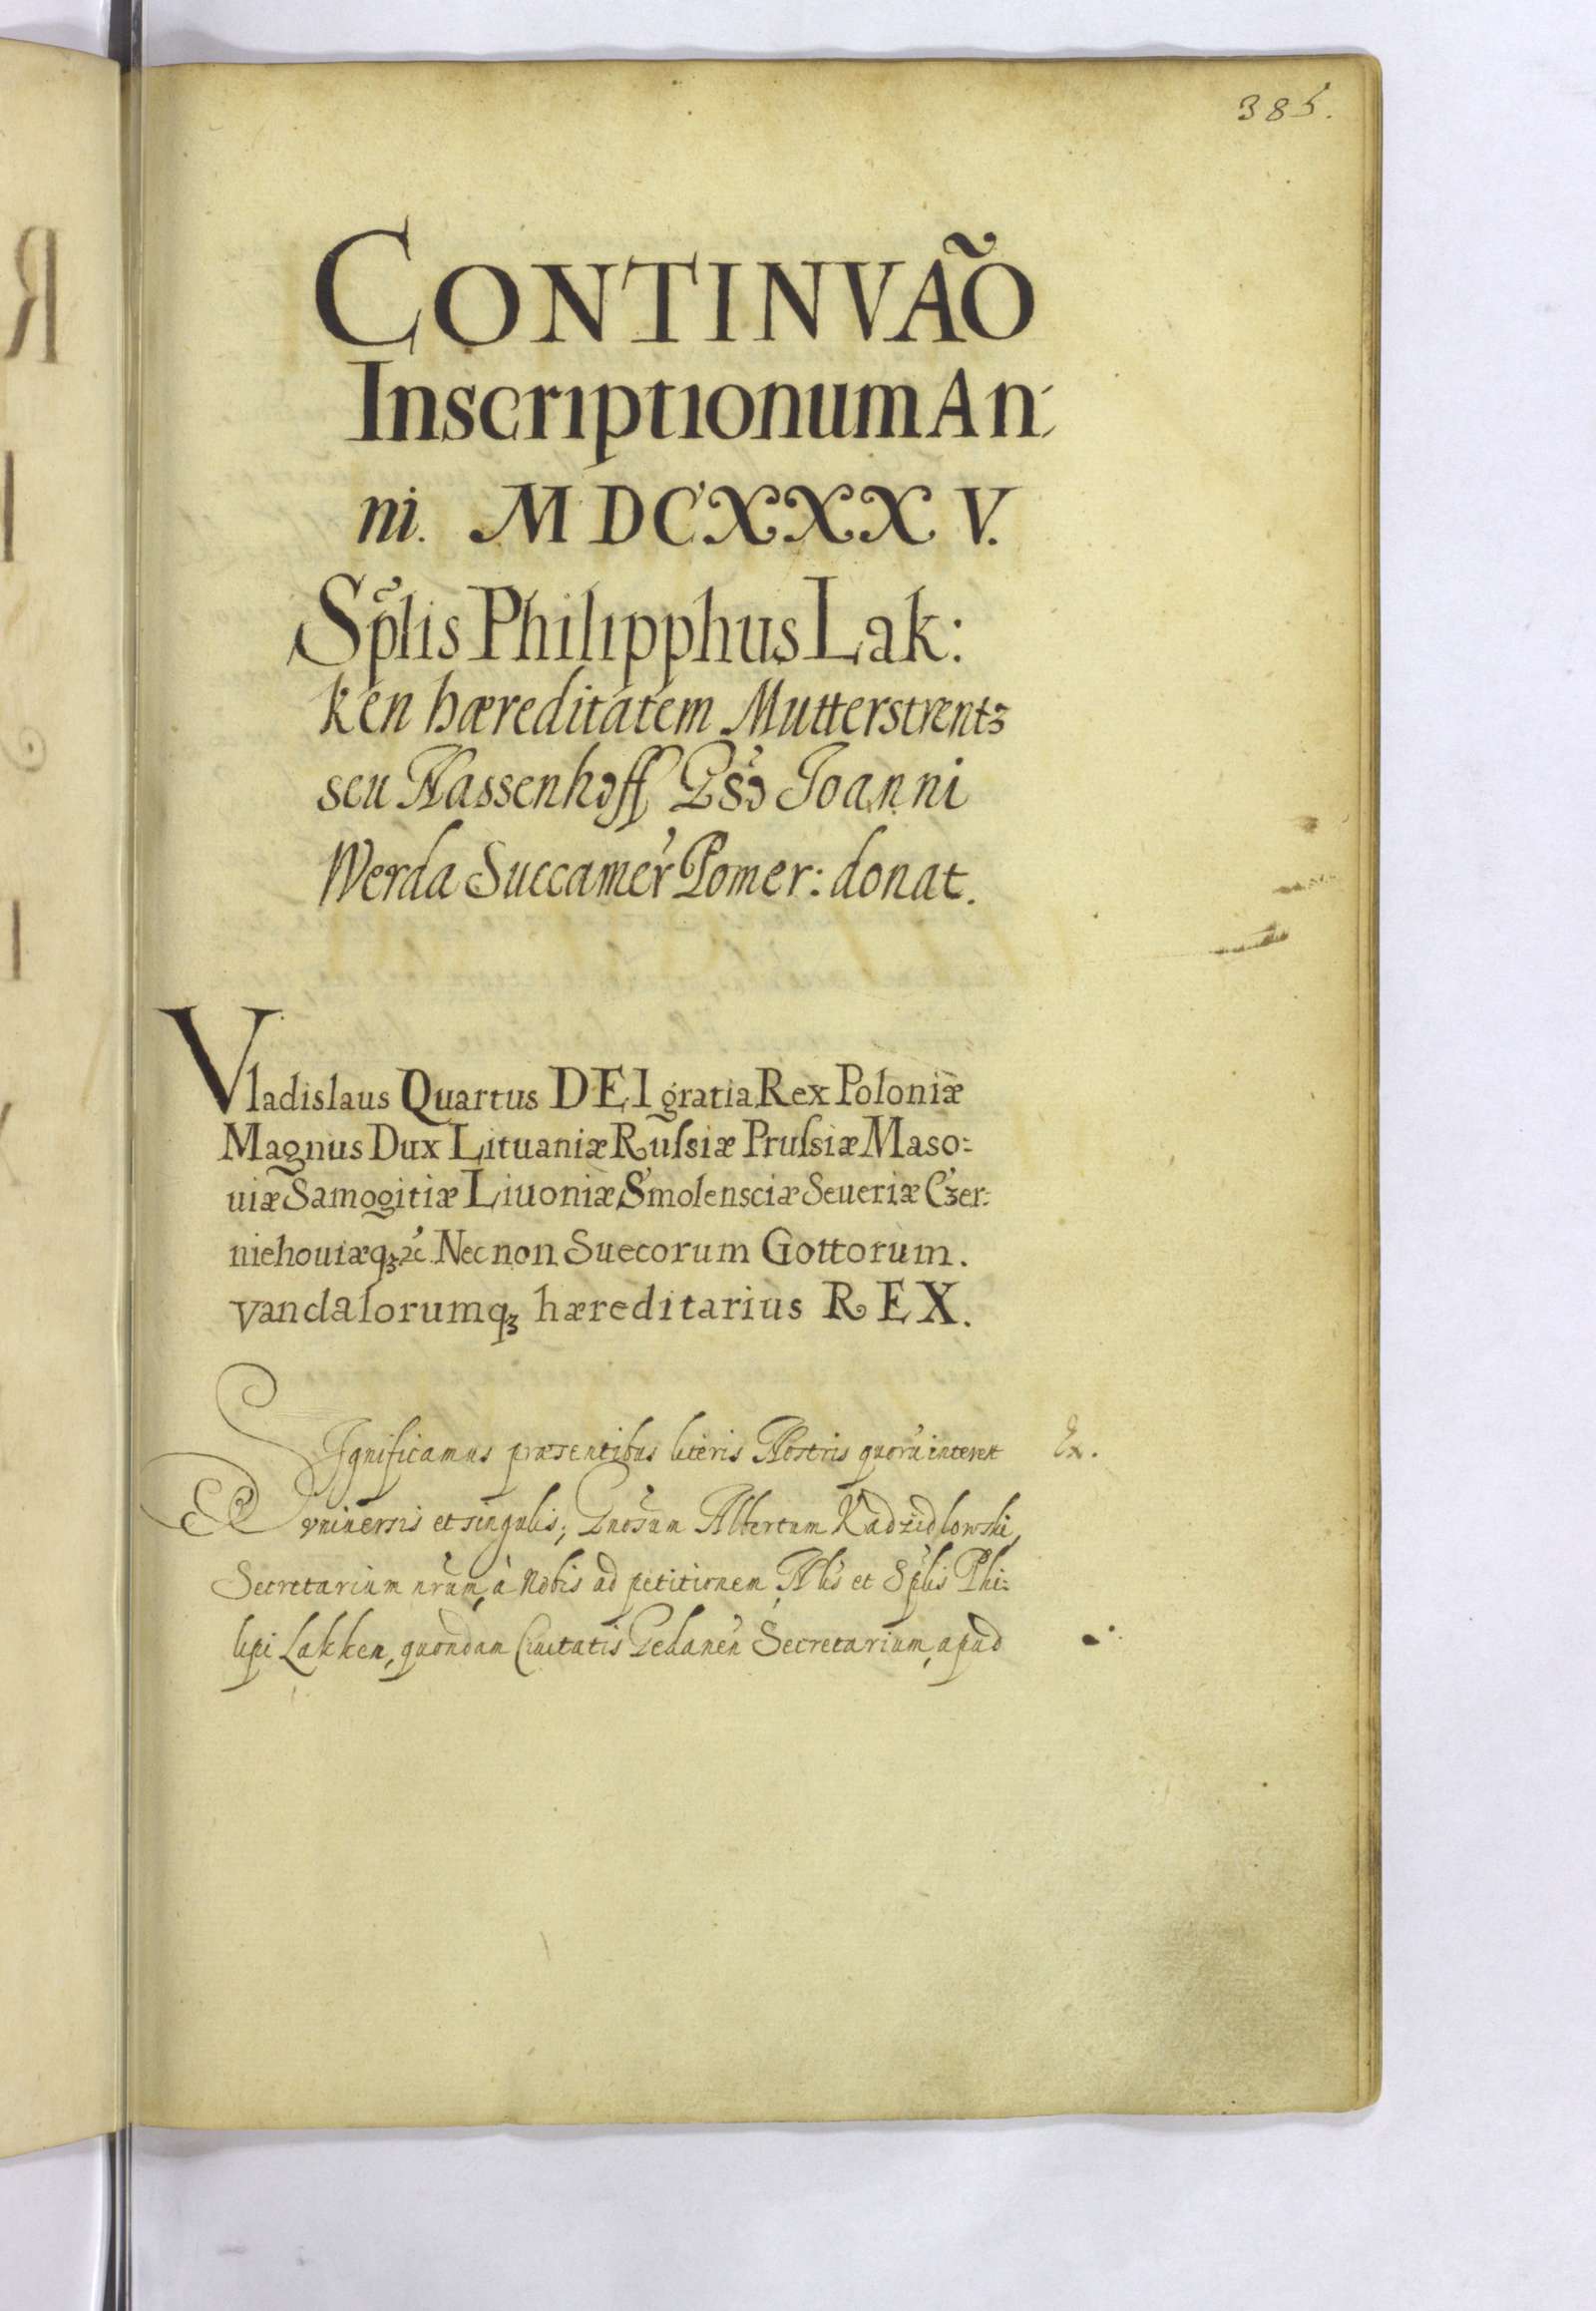 385.
CONTINVAÕ
Inscriptionum An-
ni. MDCXXXV.
Sp̃lis Philipphus Lak:
ken hæreditatem Mutterstrentz
seu Nassenhoff Gs̃o Joanni
Werda Succamer̃ Pomer: donat.
Vladislaus Quartus DEI gratia Rex Poloniæ
Magnus Dux Lituaniæ Rußiæ Prußiæ Maso:
uiæ Samogitiæ Liuoniæ Smolensciæ Seueriæ Czer:
niehouiæqꝫ ꝛc̃. Necnon Suecorum Gottorum.
vandalorumqꝫ hæreditarius REX.
SIgnificamus præsentibus literis Nostris quorũ interest
vniuersis et singulis; Gnosum Albertum Kadzidlowski,
Secretarium nrũm, à Nobis ad petitionem Nb̃lis et Sp̃lis Phi:
lipi Lakken, quondam Ciuitatis Gedanen̄ Secretarium, apud